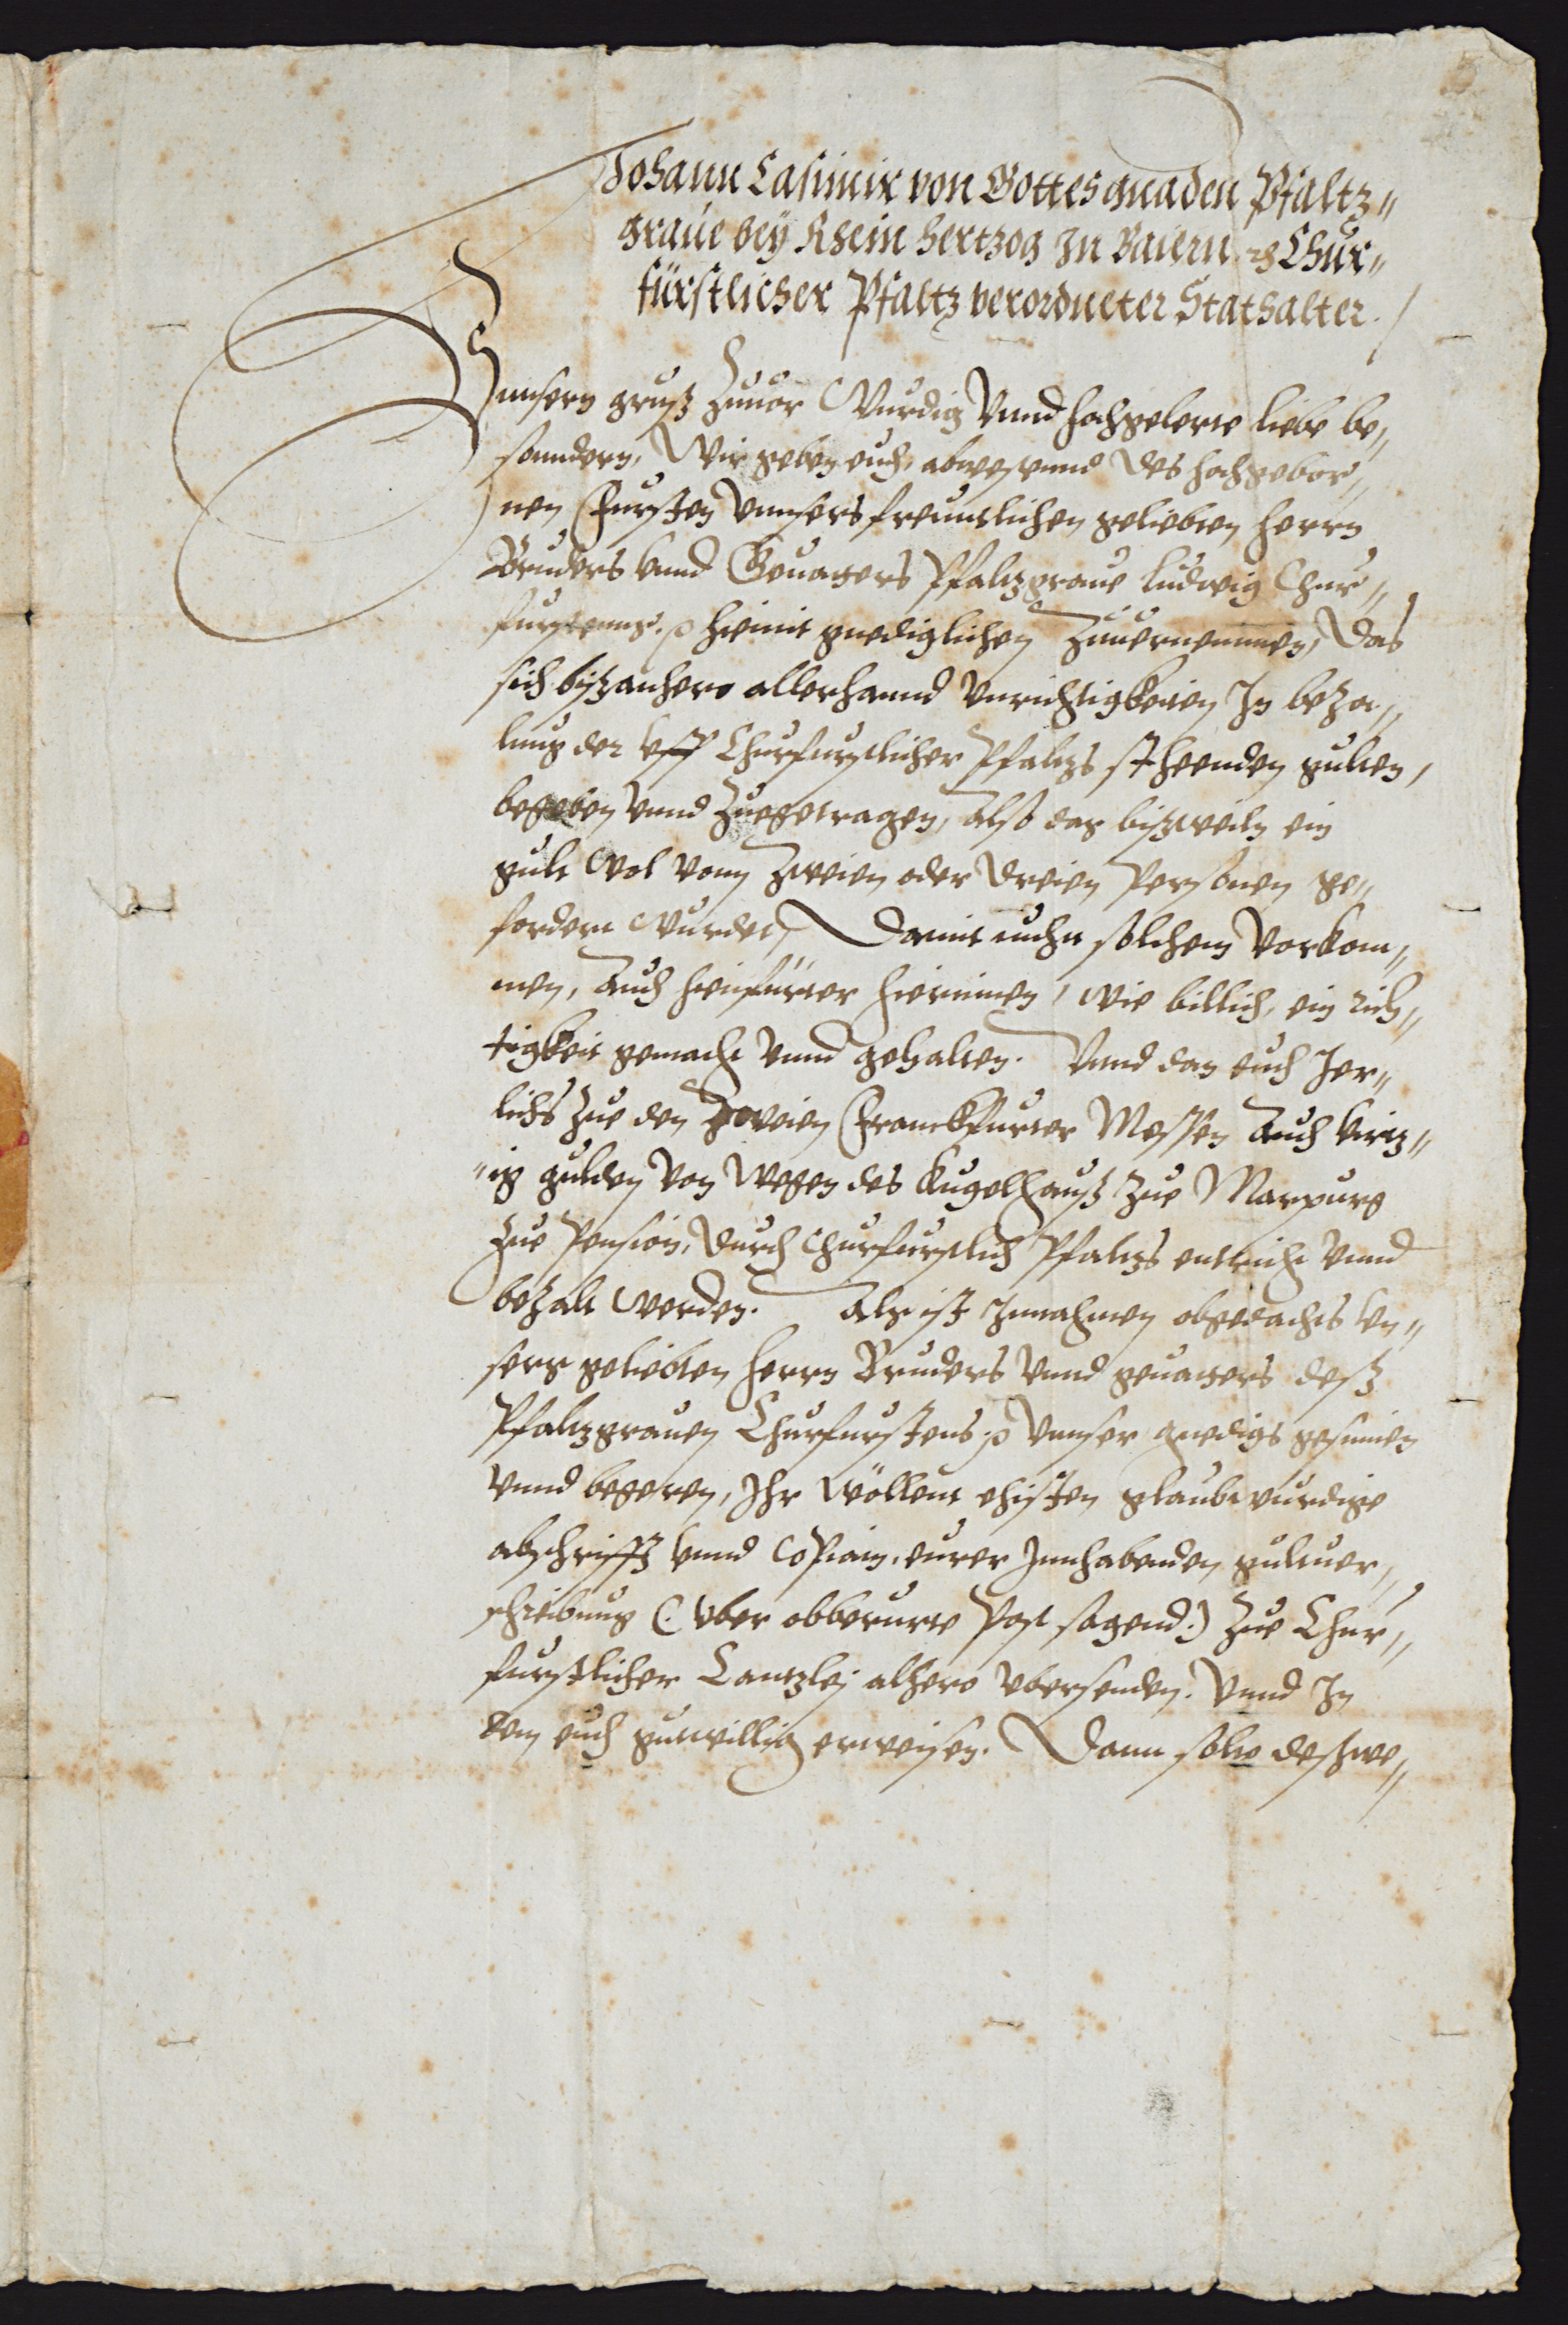 Johann Casimir von Gottes gnaden Pfaltz„
graue bey Rhein Hertzog In Baiern ꝛc Chur„
fürstlicher Pfaltz verordneter Stathalter./
Vnnsern gruß zuuor Wurdig vnnd hochgelerte liebe be„
sonndern, Wir geben euch, abwesennd des hochgebor„
nen Fursten vnnsers freuntlichen gelieben herrn
Bruders vnnd Geuatters Pfaltzgraue Ludwig Chur„
furstenns. ꝛc hiemit gnediglichen zuuernemmen, Das
sich bißanhero allerhannd vnrichtigkeiten In beza„
lung der vff Churfurstlicher Pfaltzs stheenden gulten,
begeben vnnd zuegetragen, Also das bißweiln ein
gult Wol vonn zweien oder dreien Personen ge„
fordert wurdet, Damit nuhn solchem vorkom„
men, Auch hienfürter hierinnen, wie billich, ein rich„
tigkeit gemacht vnnd gehalten. Vnnd dan euch Jer„
lichs zue den zweien Franckfurter Messen Auch viertz„
„ig gulden von wegen des Kugelhauß zue Marpurg
zue Pension, durch Churfurstlich Pfaltzs entricht vnnd
bezalt werden. Als ist Innahmen obgedachts vn„
sers geliebten herrn Bruders vnnd geuatters deß
Pfaltzgrauen Churfurstens ꝛc vnnser gnedigs gesinnen
vnnd begeren, Ihr wöllent ehisten glaubwurdige
abschrifft vnnd Copiam, eurer Innhabenden gultuer„
schreibung (: vber obberurte Post sagend :) zue Chur„
furstlicher Cantzlej alhero vbersenden. Vnnd In
dem euch gutwillig erweisen. Dann solte deßwe„